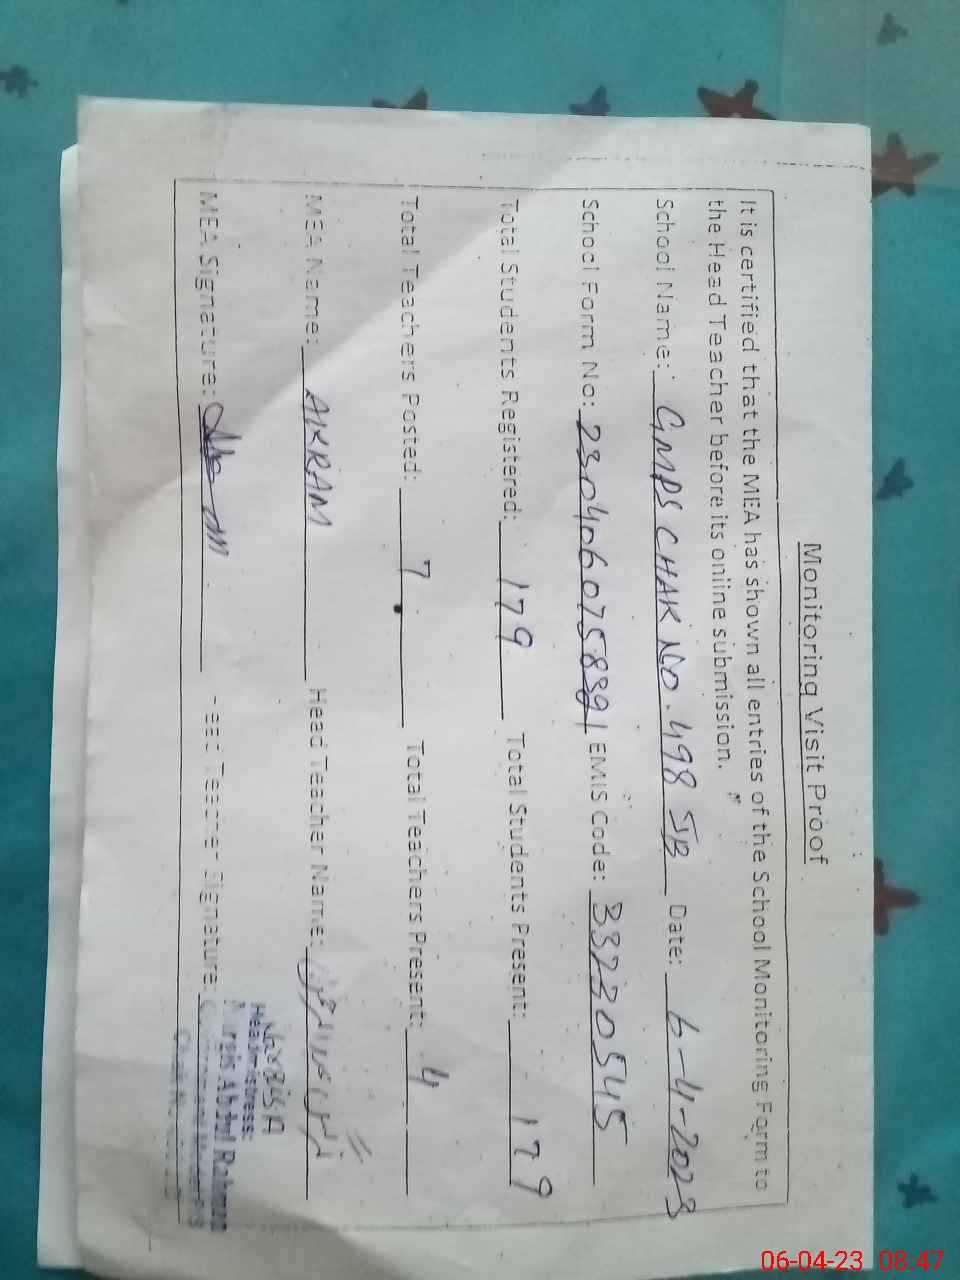 Monitoring Visit Proof
It is certified that the MEA has shown all entries of the School Monitoring Form to
the Head Teacher before its online submission.
School Name: GMPS CHAK NO. 498 JB Date: 6-4-2023
School Form No: 2304060758391 EMIS Code: 33230545
Total Students Registered: 179 Total Students Present: 179
Total Teachers Posted: 7 Total Teachers Present: 4
MEA Name: AKRAM Head Teacher Name: نرگس عبدالرحمن
MEA Signature: Head Teacher Signature:
Headmistress:
Nargis Abdul Rehman
06-04-23 08:47